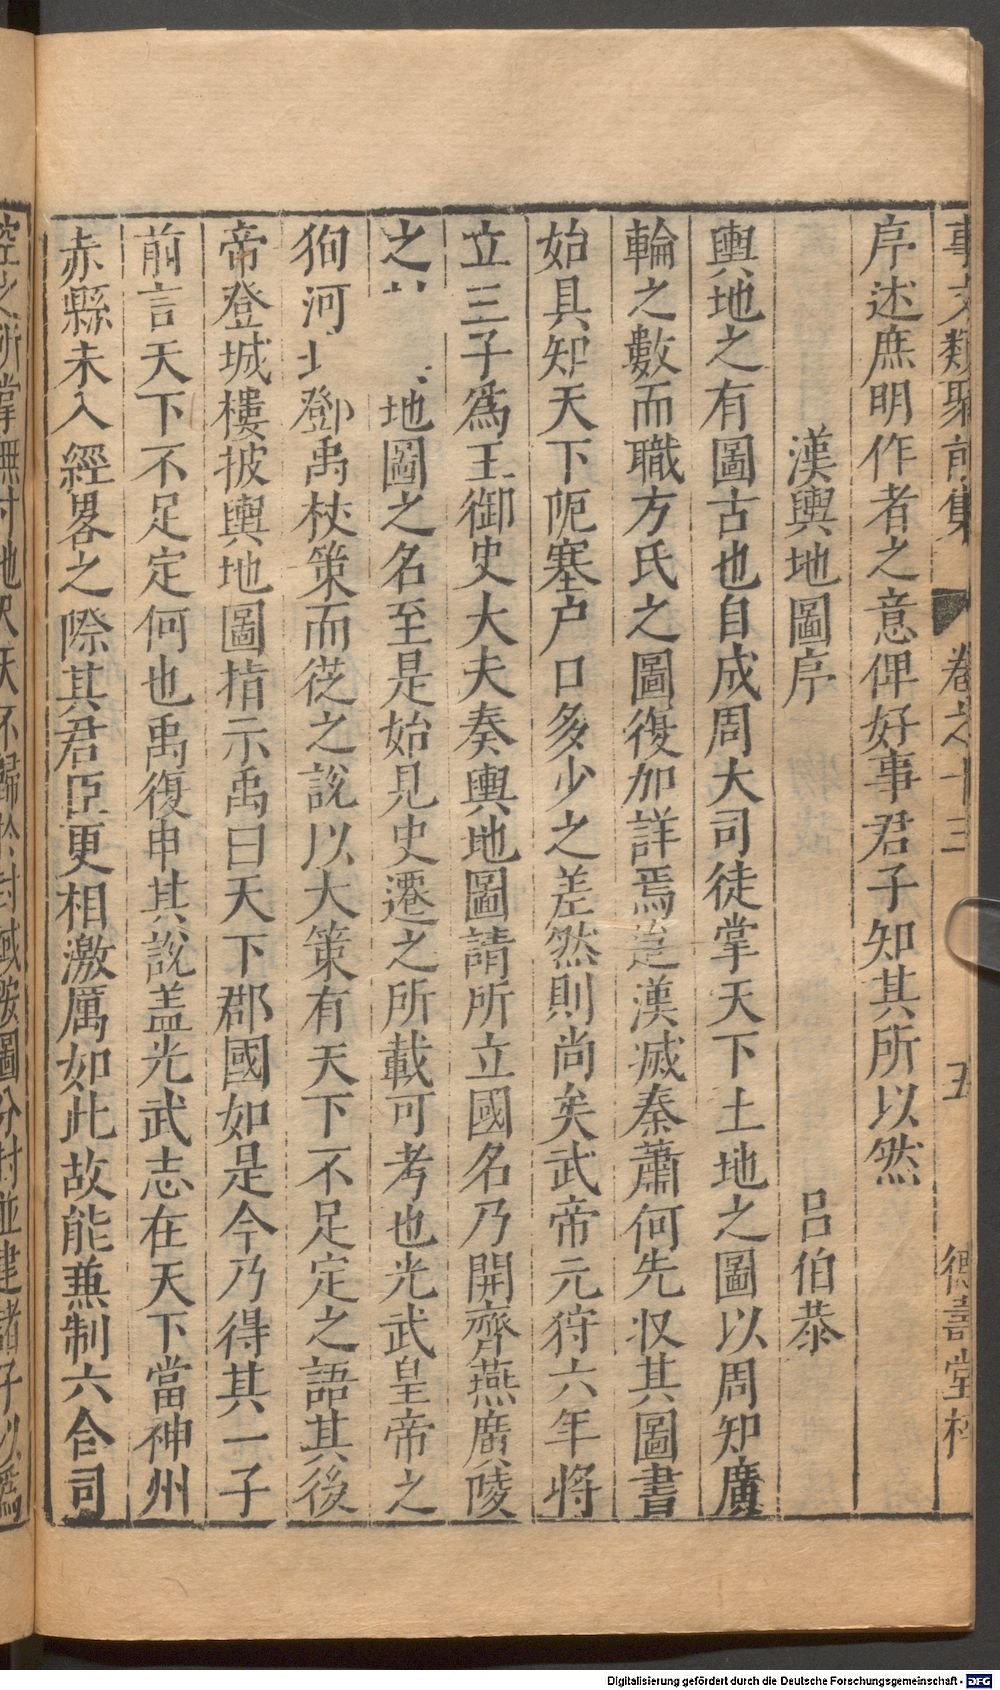 事文類聚前集 卷之十三 五 德壽堂梓
序述庶明作者之意俾好事君子知其所以然
漢輿地圖序 呂伯恭
輿地之有圖古也自成周大司徒掌天下土地之圖以周知廣
輪之數而職方氏之圖復加詳焉迨漢滅秦蕭何先收其圖書
始具知天下阨塞戶口多少之差然則尚矣武帝元狩六年將
立三子爲王御史大夫奏輿地圖請所立國名乃開齊燕廣陵
之 地圖之名至是始見史遷之所載可考也光武皇帝之
狥河北鄧禹杖策而從之說以大策有天下不足定之語其後
帝登城樓披輿地圖指示禹曰天下郡國如是今乃得其一子
前言天下不足定何也禹復申其說盖光武志在天下當神州
赤縣未入經畧之際其君臣更相激厲如此故能兼制六合司